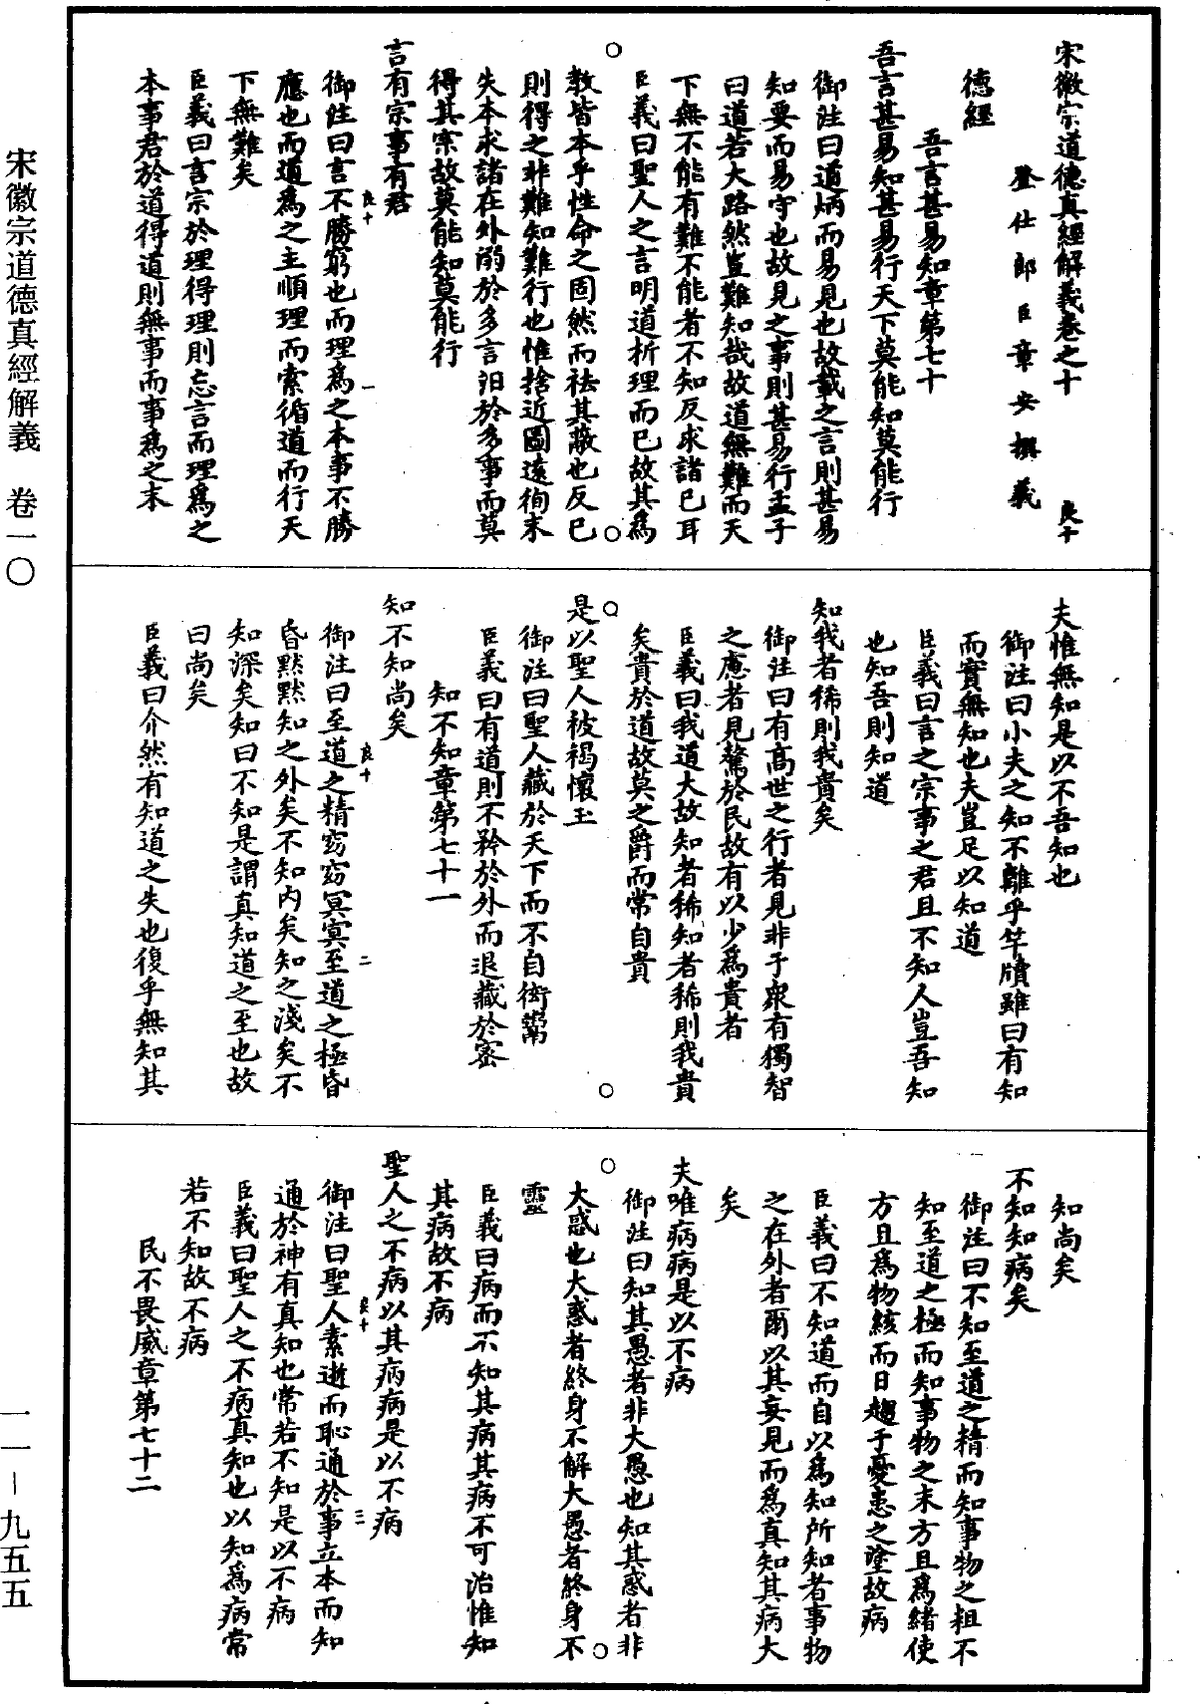 宋徽宗道德真經解義卷之十
良十
登仕郎臣章安撰義
德經
吾言甚易知章第七十
吾言甚易知甚易行天下莫能知莫能行
御注曰道炳而易見也故載之言則甚易
知要而易守也故見之事則甚易行孟子
曰道若大路然豈難知哉故道無難而天
下無不能有難不能者不知反求諸己耳
臣義曰聖人之言明道析理而已故其為
教皆本乎性命之固然而祛其蔽也反己
則得之非難知難行也惟捨近圖遠徇末
失本求諸在外溺於多言汩於多事而莫
得其宗故莫能知莫能行
言有宗事有君
良十
一
御注曰言不勝窮也而理為之本事不勝
應也而道為之主順理而索循道而行天
下無難矣
臣義曰言宗於理得理則忘言而理為之
本事君於道得道則無事而事為之末
夫惟無知是以不吾知也
御注曰小夫之知不離乎竿牘雖曰有知
而實無知也夫豈足以知道
臣義曰言之宗事之君且不知人豈吾知
也知吾則知道
知我者稀則我貴矣
御注曰有高世之行者見非于衆有獨智
之慮者見驁於民故有以少為貴者
臣義曰我道大故知者稀知者稀則我貴
矣貴於道故莫之爵而常自貴
是以聖人被褐懷玉
御注曰聖人藏於天下而不自衒鬻
臣義曰有道則不矜於外而退藏於密
知不知章第七十一
知不知尚矣
良十
二
御注曰至道之精窈窈冥冥至道之極昏
昏默默知之外矣不知內矣知之淺矣不
知深矣知曰不知是謂真知道之至也故
曰尚矣
臣義曰介然有知道之失也復乎無知其
知尚矣
不知知病矣
御注曰不知至道之精而知事物之粗不
知至道之極而知事物之末方且為緒使
方且為物絯而日趨于憂患之塗故病
臣義曰不知道而自以為知所知者事物
之在外者爾以其妄見而為真知其病大
矣
夫唯病病是以不病
御注曰知其愚者非大愚也知其惑者非
大惑也大惑者終身不解大愚者終身不
靈
臣義曰病而不知其病其病不可治惟知
其病故不病
聖人之不病以其病病是以不病
良十
三
御注曰聖人素逝而恥通於事立本而知
通於神有真知也常若不知是以不病
臣義曰聖人之不病真知也以知為病常
若不知故不病
民不畏威章第七十二
宋徽宗道德真經解義　卷一〇
一一－九五五